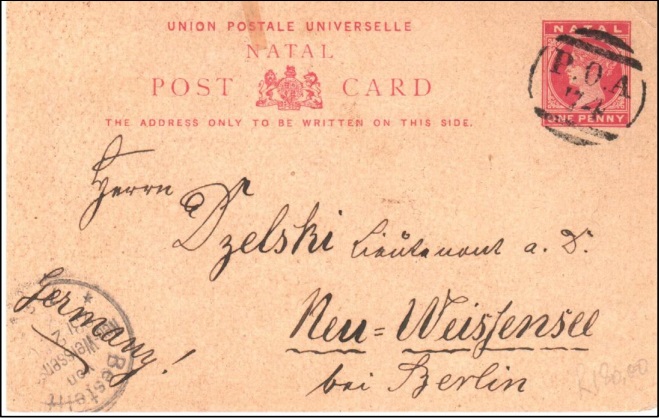 UNION POSTALE UNIVERSELLE
NATAL
POST CARD
THE ADDRESS ONLY TO BE WRITTEN ON THIS SIDE.
NATAL
ONE PENNY
P.O.A
74
Herrn
Dzelski Lieutenant a. D.
Neu=Weissensee
bei Berlin
Germany!
Beste
Weissen
R190,00